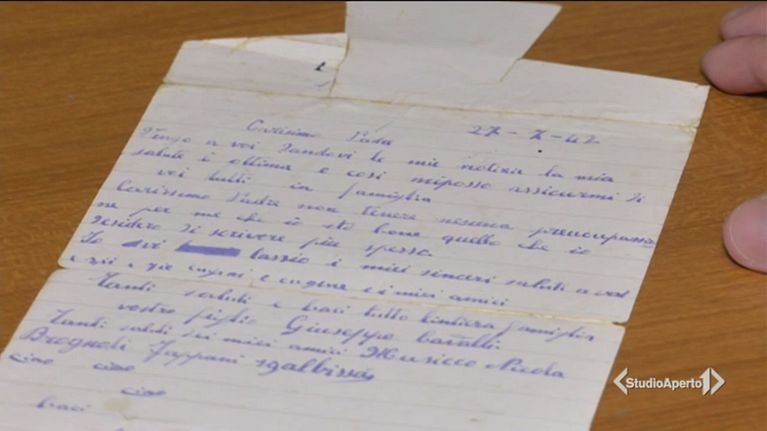 Carisimo Padre 27-7-42
Vengo a voi dandovi le mie notizie la mia
salute è ottima e così
voi tutti in famiglia
Carissimo Padre non tenere nesuna preucupassio
ne per me che io stò bene quello che io
desidero di scrivere più spesso.
Io lascio i miei sinceri saluti a voi
e zii e zie cugini e cugine e i miei amici
Tanti saluti e baci tutto lintiera famiglia
vostro figlio Giuseppe
Tanti saluti dei miei amici Musicco Nicola
Brognoli Zappani
ciao ciao
ciao
baci
StudioAperto1